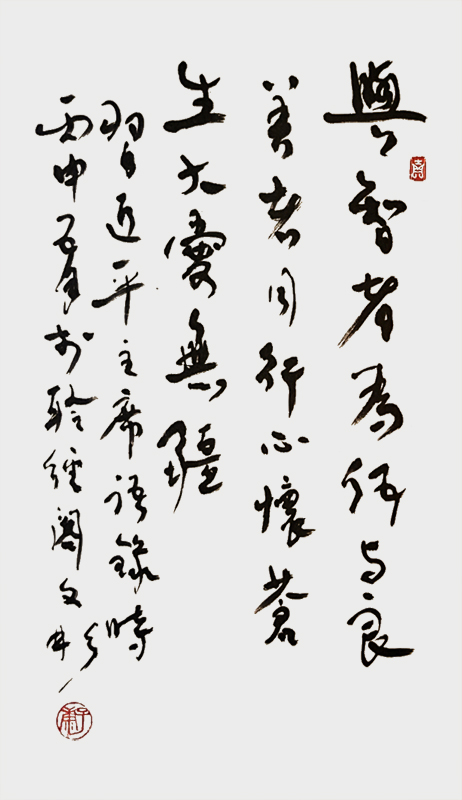 與智者為伍与良
善者同行心懷蒼
生大愛無疆
習近平主席语錄時
丙申五月於聆經閣文井